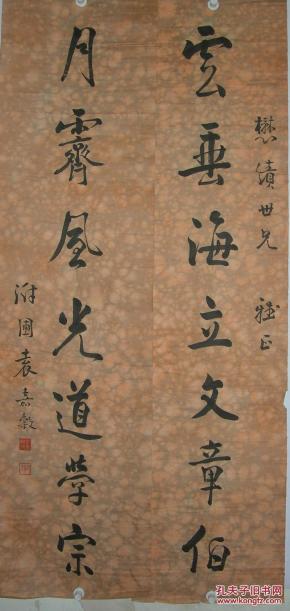 懋績世兄 雅正
雲垂海立文章伯
月霽風光道學宗
澍圃袁嘉穀
孔夫子旧书网
www.kongfz.com